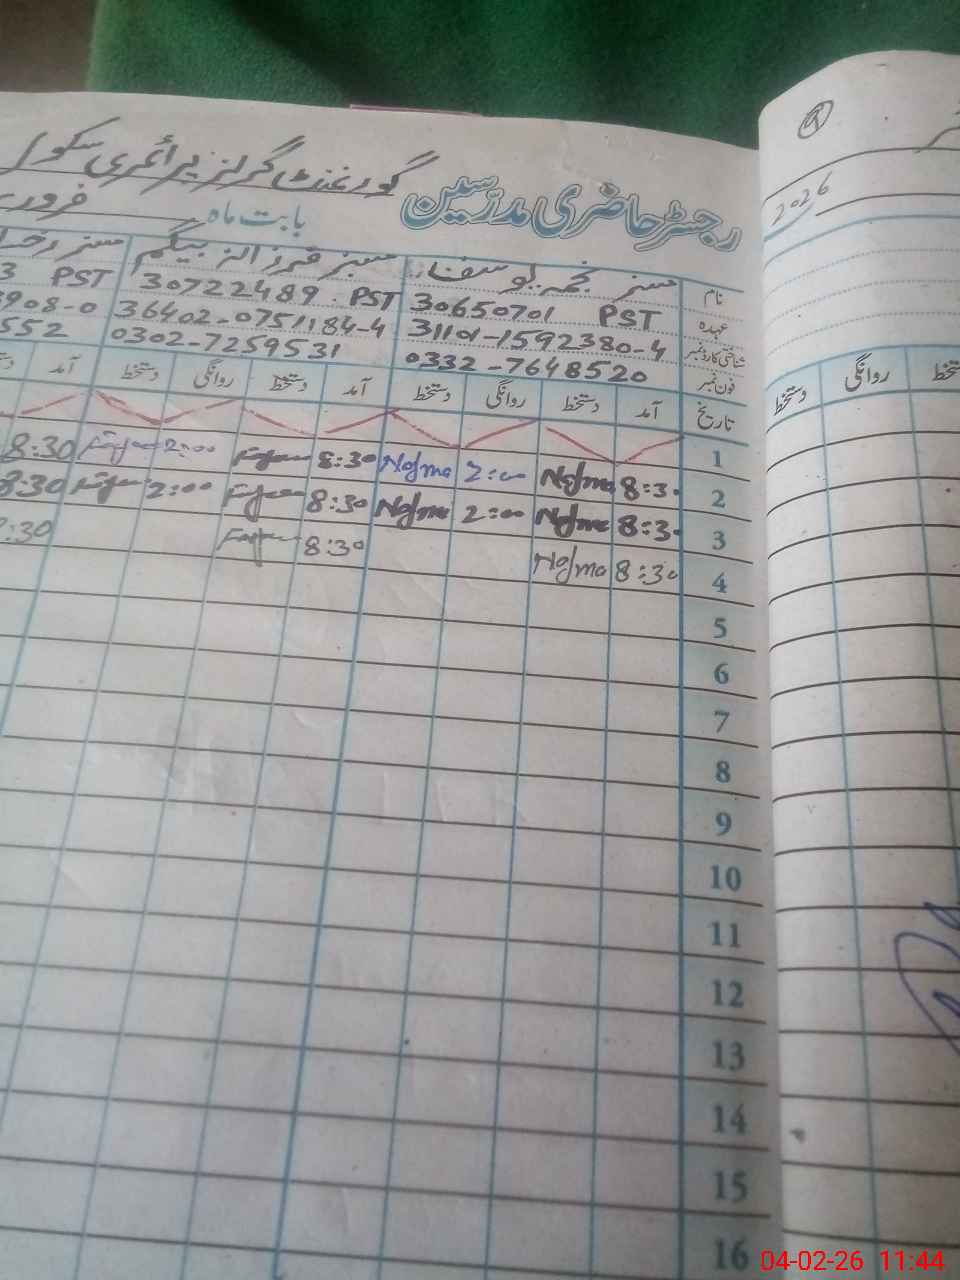 رجسٹر حاضری مدرسین گورنمنٹ گرلز پرائمری سکول
بابت ماہ فرور
2026
نام مسز نجمہ یوسف مسز فرزانہ بیگم مسز
عہدہ 30650701 PST 30722489 PST 3 PST
شناختی کارڈ نمبر 31101-1592380-4 36402-0751184-4 908-0
فون نمبر 0332-7648520 0302-7259531 552
تاریخ آمد دستخط روانگی دستخط آمد دستخط روانگی دستخط آمد
روانگی دستخط
1
2 8:30 Najma 2:00 Najma 8:30 2:00 8:30
3 8:30 Najma 2:00 Najma 8:30 2:00 8:30
4 8:30 Najma 8:30 :30
5
6
7
8
9
10
11
12
13
14
15
16
04-02-26 11:44